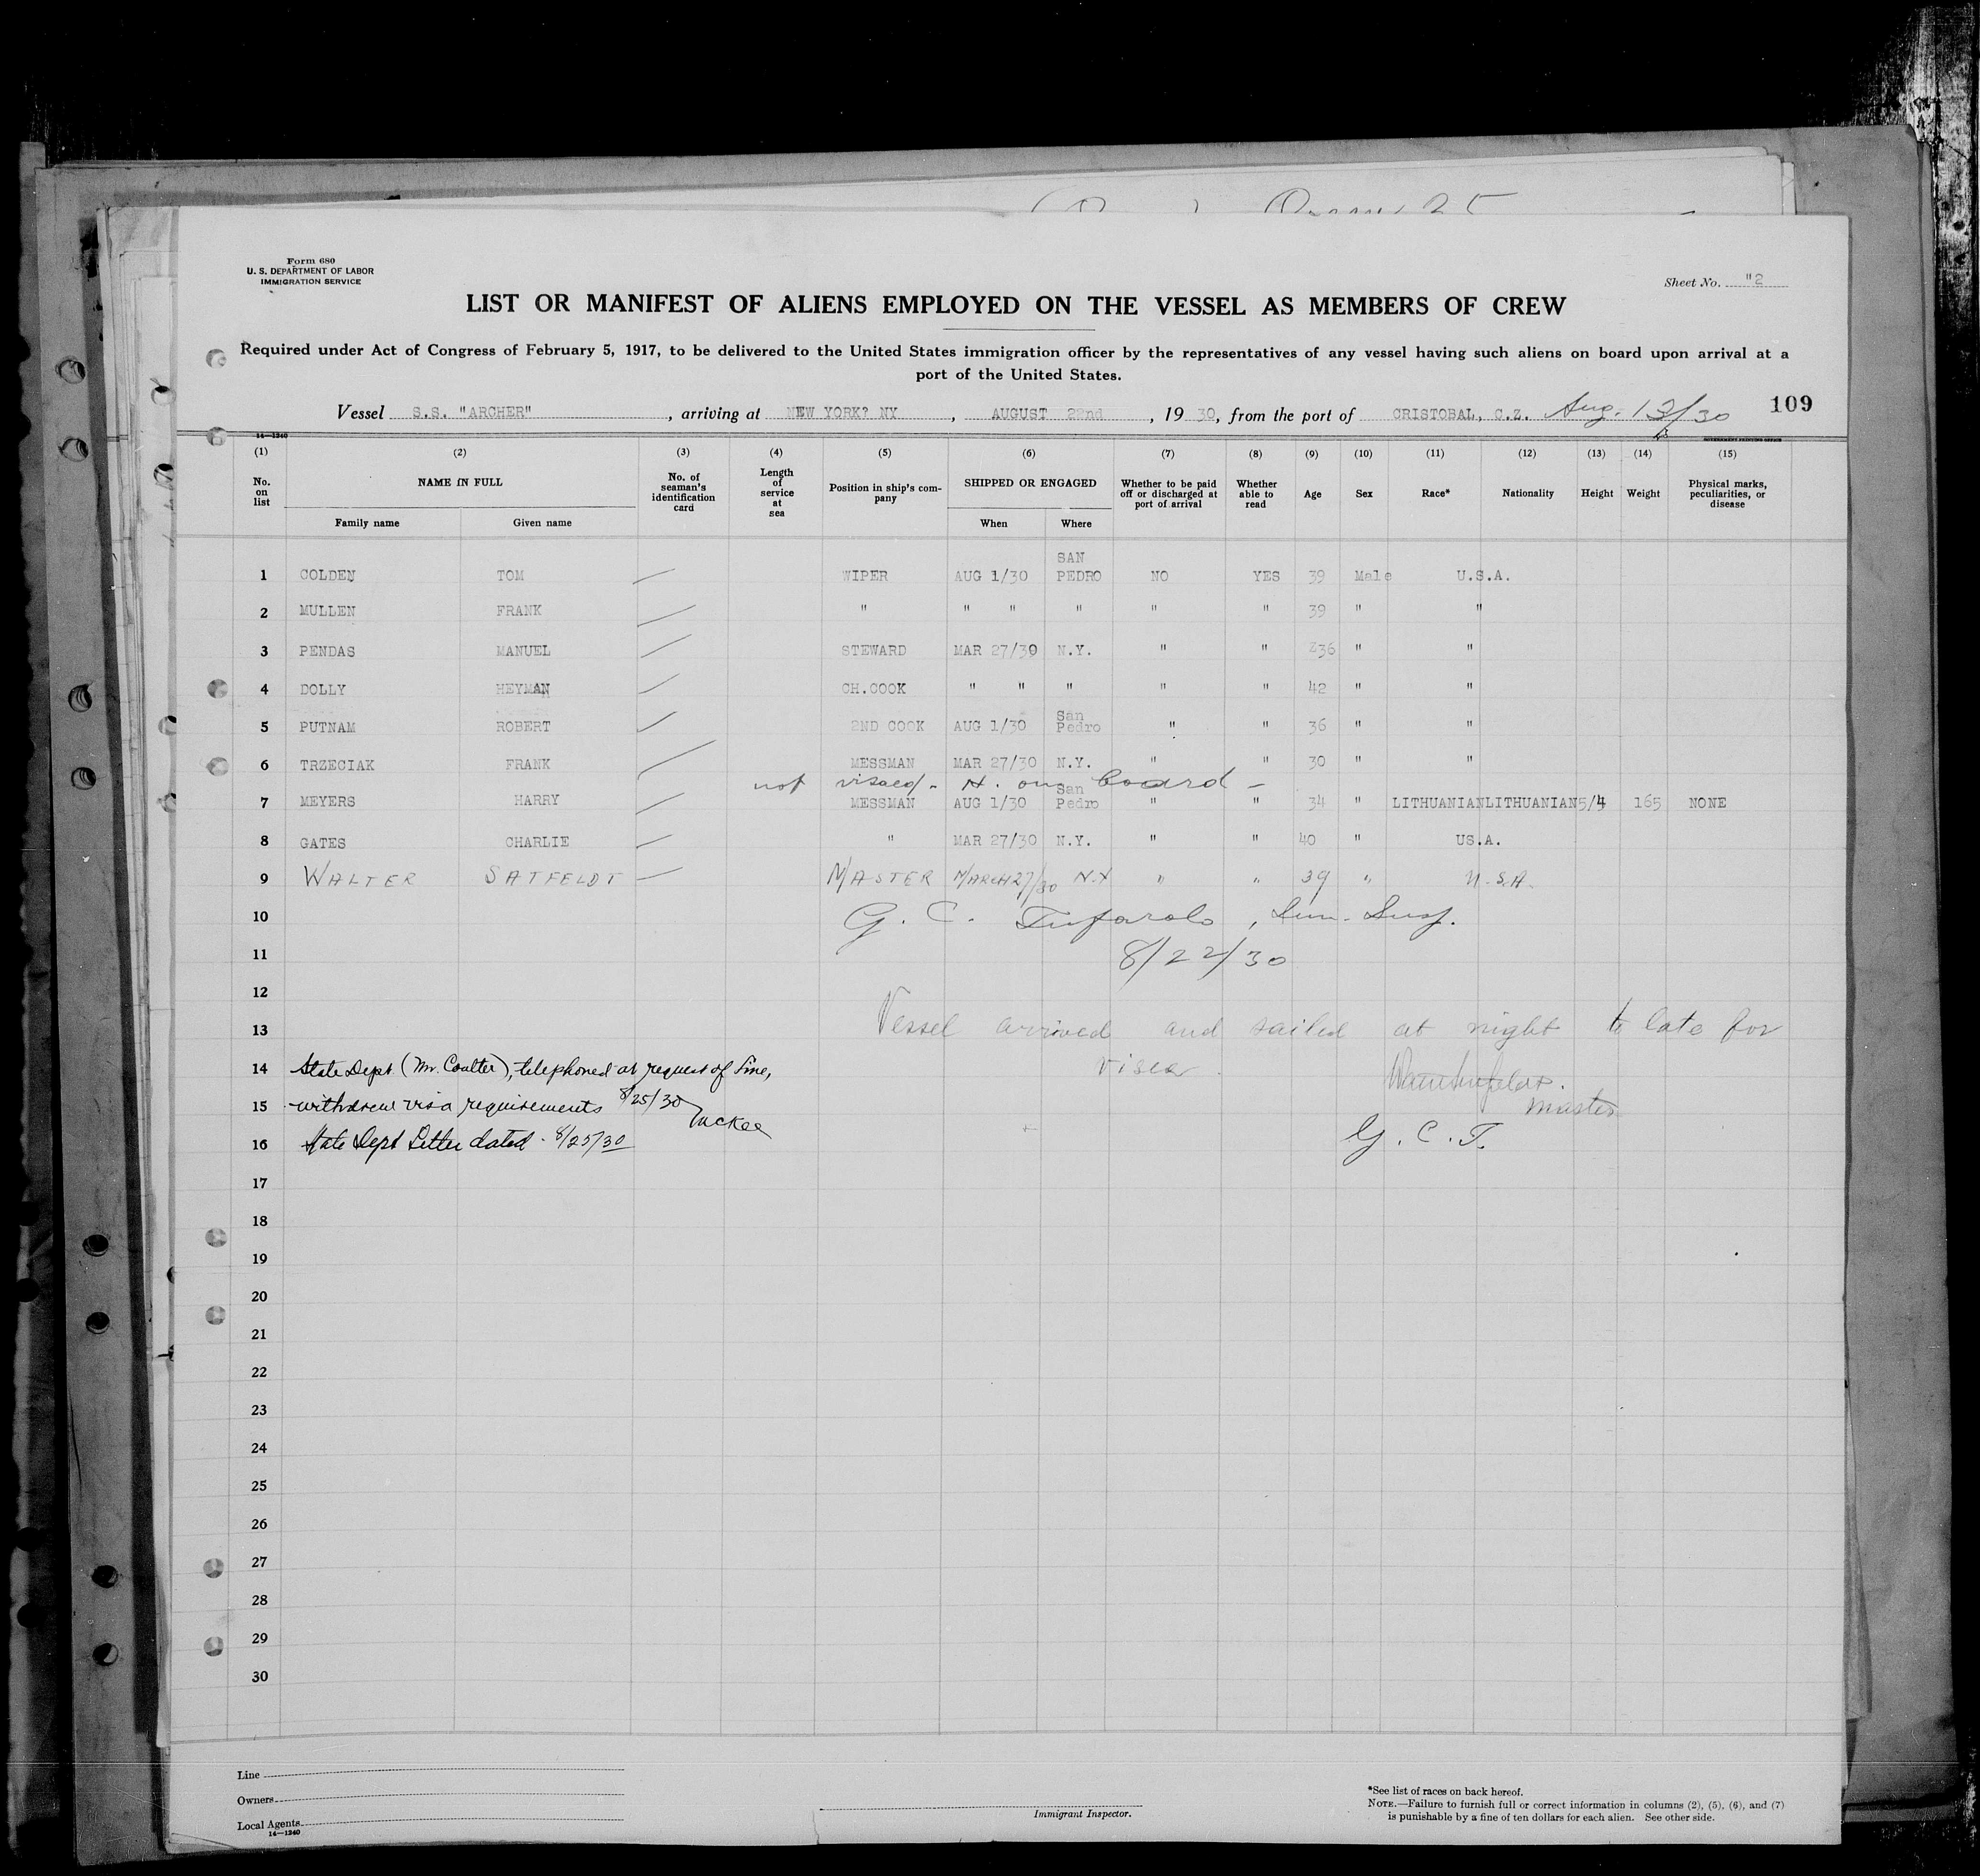 Form 680
U. S. DEPARTMENT OF LABOR
IMMIGRATION SERVICE
Sheet No. "2
LIST OR MANIFEST OF ALIENS EMPLOYED ON THE VESSEL AS MEMBERS OF CREW
Required under Act of Congress of February 5, 1917, to be delivered to the United States immigration officer by the representatives of any vessel having such aliens on board upon arrival at a
port of the United States.
Vessel S.S. "ARCHER", arriving at NEW YORK? NX, AUGUST 22nd, 1930, from the port of CRISTOBAL, C.Z. Aug. 13/30 109
14—1240
(1) (2) (3) (4) (5) (6) (7) (8) (9) (10) (11) (12) (13) (14) (15)
No. on list NAME IN FULL No. of seaman's identification card Length of service at sea Position in ship's company SHIPPED OR ENGAGED Whether to be paid off or discharged at port of arrival Whether able to read Age Sex Race* Nationality Height Weight Physical marks, peculiarities, or disease
Family name Given name When Where
1 COLDEN TOM WIPER AUG 1/30 SAN PEDRO NO YES 39 Male U.S.A.
2 MULLEN FRANK " " " " " " 39 " "
3 PENDAS MANUEL STEWARD MAR 27/30 N.Y. " " 36 " "
4 DOLLY HEYMAN CH.COOK " " " " " 42 " "
5 PUTNAM ROBERT 2ND COOK AUG 1/30 San Pedro " " 36 " "
6 TRZECIAK FRANK MESSMAN MAR 27/30 N.Y. " " 30 " "
not visaed - H. on board -
7 MEYERS HARRY MESSMAN AUG 1/30 San Pedro " " 34 " LITHUANIAN LITHUANIAN 5/4 165 NONE
8 GATES CHARLIE " MAR 27/30 N.Y. " " 40 " US.A.
9 WALTER SATFELDT MASTER MARCH 27/30 N.Y " " 39 " U.S.A.
10 G. C. Tufarolo, Imm. Insp.
11 8/22/30
12
13 Vessel arrived and sailed at night to late for
visea.
14 State Dept (Mr. Coulter), telephoned at request of Line,
15 withdrew visa requirements 8/25/30
master
16 State Dept Letter dated - 8/25/30
G. C. T.
17
18
19
20
21
22
23
24
25
26
27
28
29
30
Line
Owners
Local Agents
14—1240
Immigrant Inspector.
*See list of races on back hereof.
NOTE.—Failure to furnish full or correct information in columns (2), (5), (6), and (7)
is punishable by a fine of ten dollars for each alien. See other side.